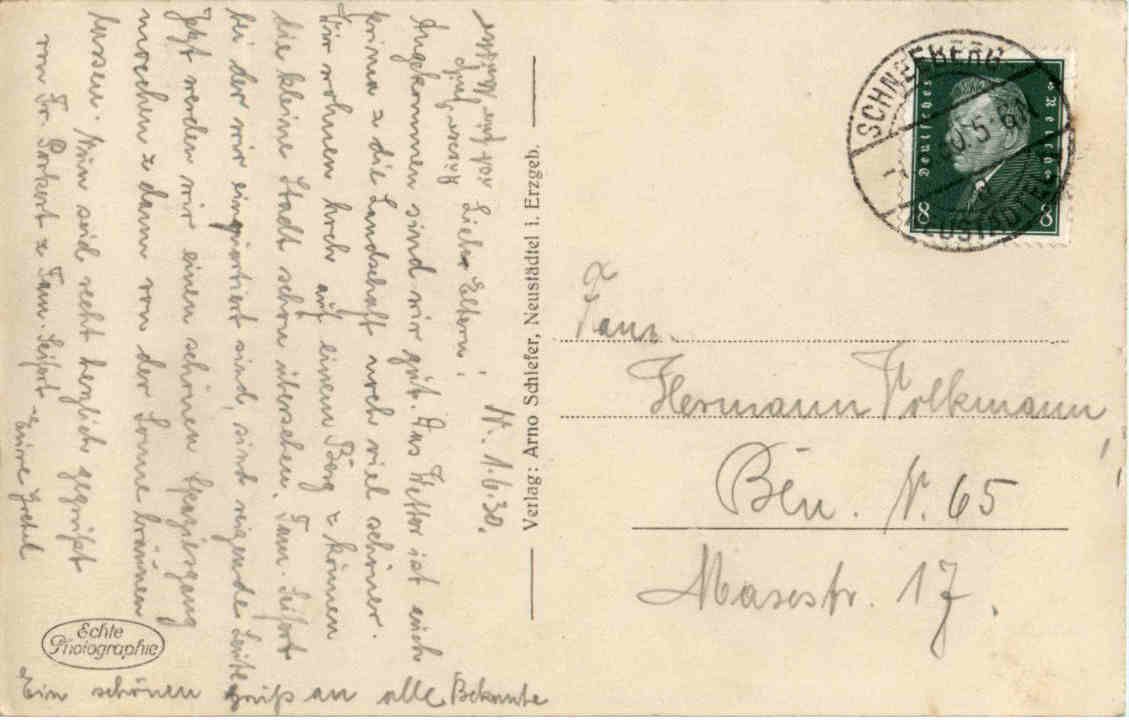 N. 1.6.30.
Liebe Eltern!
Angekommen sind wir gut. Das Wetter ist auch
prima u die Landschaft noch viel schöner.
Wir wohnen hoch auf einem Berg u können
die kleine Stadt schön übersehen. Fam. Seifert
bei der wir einquartiert sind, sind reizende Leute
Jetzt werden wir einen schönen Spaziergang
machen u dann von der Sonne bräunen
lassen. Nun seid recht herzlich gegrüßt
von Fr. Porkert u Fam. Seifert u Eure Gretel
Ein schönen Gruß an alle Bekannte
Echte
Photographie
Verlag: Arno Schiefer, Neustädtel i. Erzgeb.
SCHNEEBERG
NEUSTÄDTEL
Deutsches Reich
8 8
Fam.
Hermann Volkmann
Bln. N. 65
Maxstr. 17.